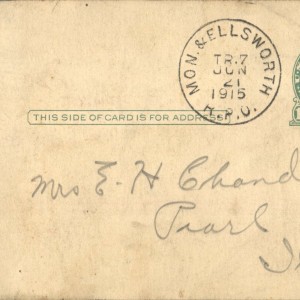 MON. & ELLSWORTH
TR.7
JUN
21
1915
R.P.O.
THIS SIDE OF CARD IS FOR ADDRESS
Mrs E. H Chand
Pearl